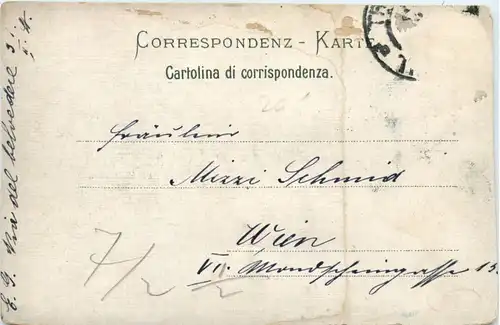 CORRESPONDENZ - KARTE
Cartolina di corrispondenza.
Fräulein
Mizzi Schmid
Wien
VII. Mondscheingasse 13.
7/2
Via del belvedere 3